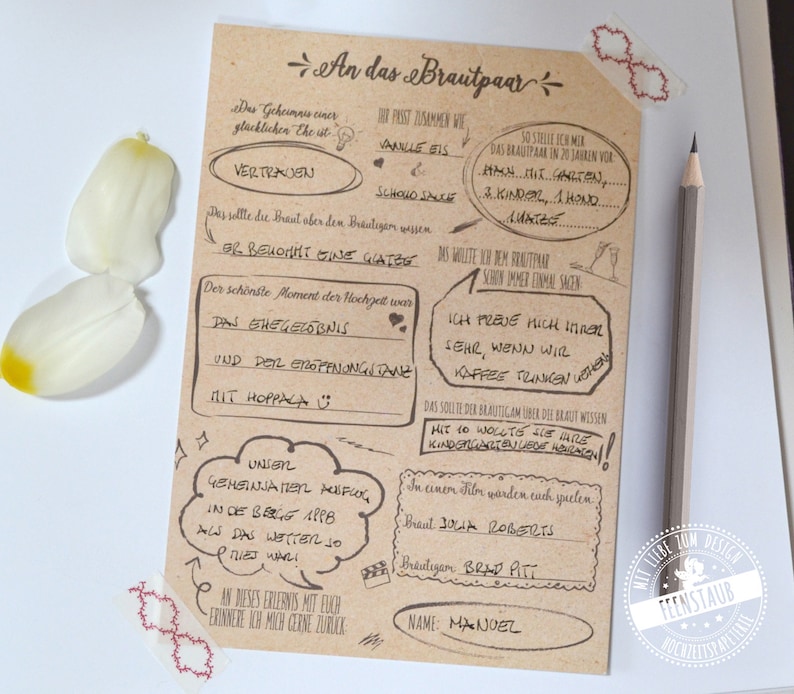 An das Brautpaar
Das Geheimnis einer
glücklichen Ehe ist
VERTRAUEN
IHR PASST ZUSAMMEN WIE
VANILLE EIS
&
SCHOKO SAUCE
SO STELLE ICH MIR
DAS BRAUTPAAR IN 20 JAHREN VOR:
HAUS MIT GARTEN,
3 KINDER, 1 HUND
1 KATZE
Das sollte die Braut über den Bräutigam wissen
ER BEKOMMT EINE GLATZE
DAS WOLLTE ICH DEM BRAUTPAAR
SCHON IMMER EINMAL SAGEN:
ICH FREUE MICH IMMER
SEHR, WENN WIR
KAFFEE TRINKEN GEHEN.
Der schönste Moment der Hochzeit war
DAS EHEGELÖBNIS
UND DER ERÖFFNUNGSTANZ
MIT HOPPALA
DAS SOLLTE DER BRÄUTIGAM ÜBER DIE BRAUT WISSEN
MIT 10 WOLLTE SIE IHRE
KINDERGARTENLIEBE HEIRATEN
!
UNSER
GEMEINSAMER AUSFLUG
IN DIE BERGE 1998
ALS DAS WETTER SO
MIES WAR!
AN DIESES ERLEBNIS MIT EUCH
ERINNERE ICH MICH GERNE ZURÜCK:
In einem Film würden euch spielen:
Braut: JULIA ROBERTS
Bräutigam: BRAD PITT
NAME: MANUEL
MIT LIEBE ZUM DESIGN
FEENSTAUB
HOCHZEITSPAPETERIE